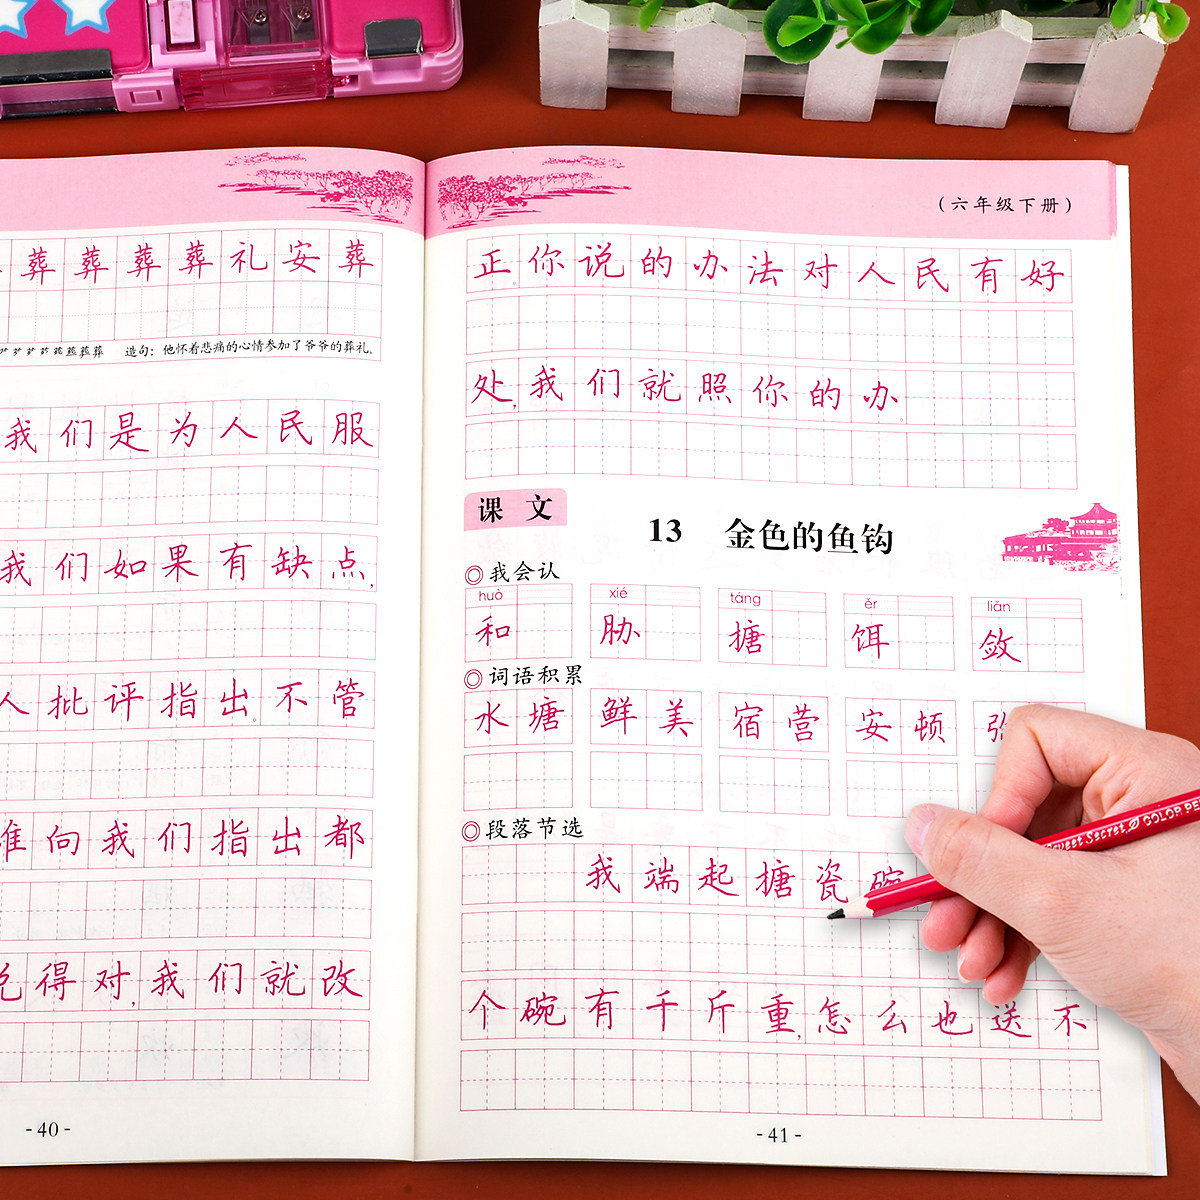 葬葬葬葬礼安葬
造句：他怀着悲痛的心情参加了爷爷的葬礼。
我们是为人民服
我们如果有缺点，
人批评指出不管
准向我们指出都
说得对，我们就改
- 40 -
（六年级下册）
正你说的办法对人民有好
处，我们就照你的办。
课文
13 金色的鱼钩
◎我会认
huò xié táng ěr liǎn
和 胁 搪 饵 敛
◎词语积累
水塘 鲜美 宿营 安顿
◎段落节选
我端起搪瓷碗
个碗有千斤重，怎么也送不
- 41 -
Sweet Secret COLOR PE